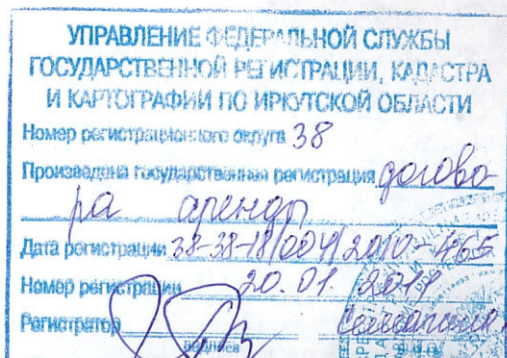 УПРАВЛЕНИЕ ФЕДЕРАЛЬНОЙ СЛУЖБЫ
ГОСУДАРСТВЕННОЙ РЕГИСТРАЦИИ, КАДАСТРА
И КАРТОГРАФИИ ПО ИРКУТСКОЙ ОБЛАСТИ
Номер регистрационного округа 38
Произведена государственная регистрация догово-
ра аренды
Дата регистрации 38-38-18/004/2010-465
Номер регистрации 20.01.
Регистратор
подпись